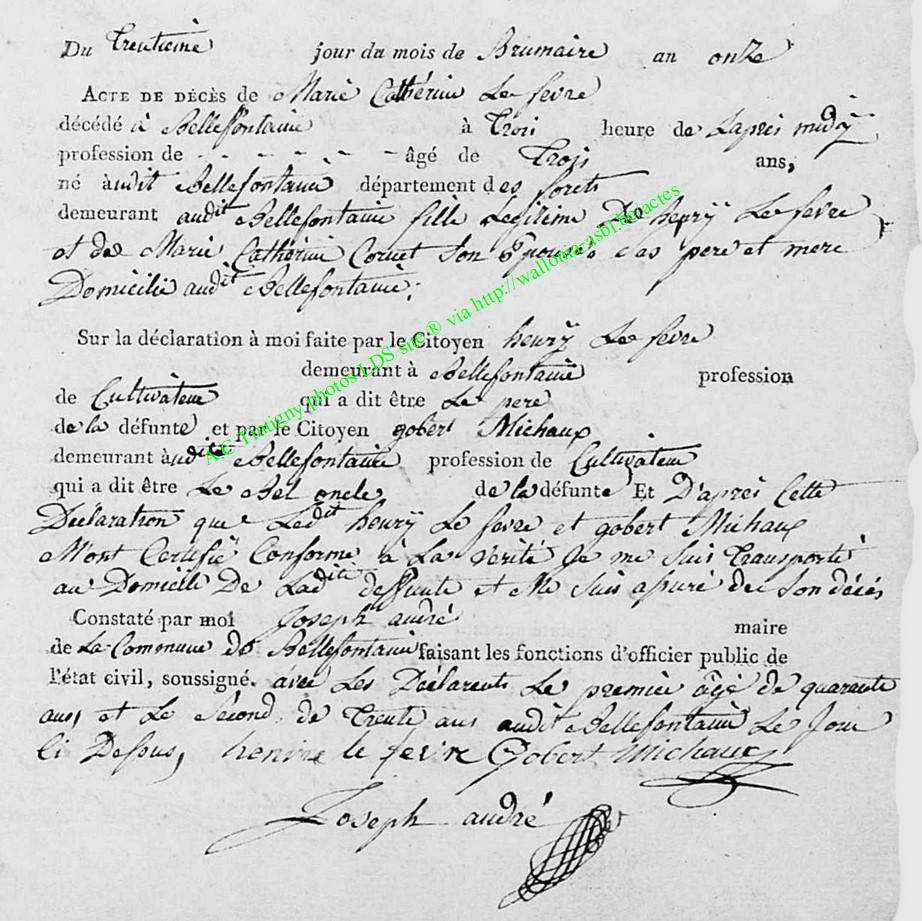 Du Trentieme jour du mois de Brumaire an onze
ACTE DE DÉCÈS de Marie Cathérine Le fevre
décédé à Bellefontaine à Trois heure de Lapres midÿ
profession de - - - - - - âgé de Trois ans,
né àudit Bellefontaine département des forets
demeurant audit Bellefontaine fille Legitime De henrÿ Le fevre
et de Marie Catherine Cornet Son Epouse ses pere et mere
Domicilié audit Bellefontaine;
Sur la déclaration à moi faite par le Citoyen henrÿ Le fevre
demeurant à Bellefontaine profession
de Cultivateur qui a dit être Le pere
de la défunte et par le Citoyen gobert Michaux
demeurant àudit Bellefontaine profession de Cultivateur
qui a dit être Le Bel oncle de la défunte Et D'après Cette
Declaration que Ledit henrÿ Le fevre et gobert Michaux
M'ont Certifié Conforme à La Vérité Je me Suis Transporté
au Domicile De Ladite deffunte et Me Suis assuré de Son décés
Constaté par moi Joseph andré maire
de La Commune de Bellefontaine faisant les fonctions d'officier public de
l'état civil, soussigné. avec Les Déclarents Le premier âgé de quarente
ans, et Le Second de Trente ans audit Bellefontaine Le Jour
Ci Dessus, henrire le fevre Gobert Michaux
Joseph andré
A.C Tintigny photos LDS site® via http://wallonia-asbl.be/actes